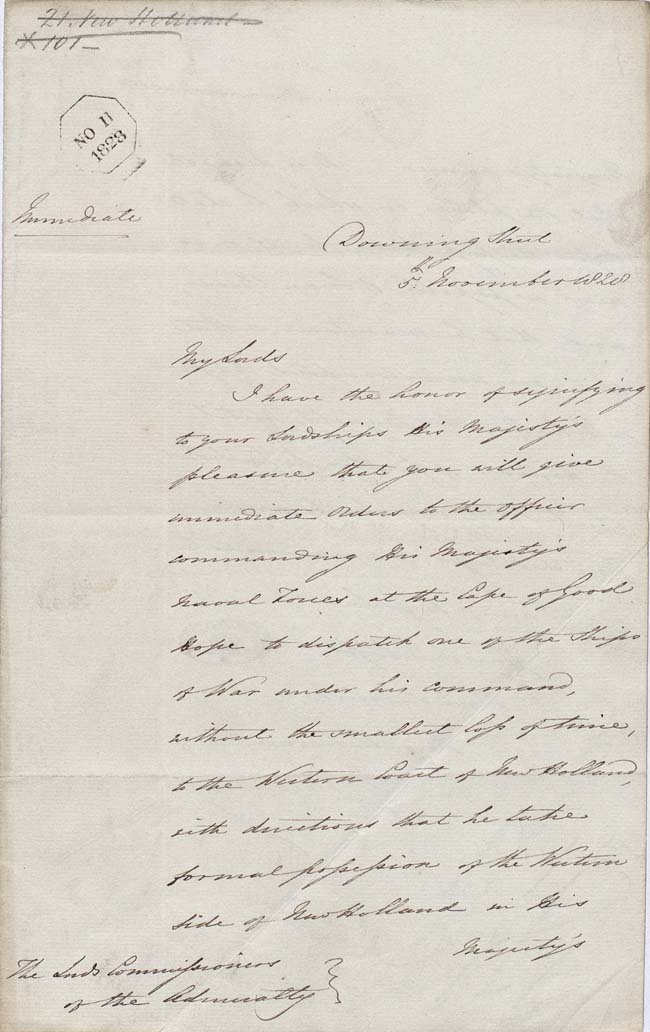 21. New Holland
X 101 —
NO 11
1828
Immediate
Downing Street
5th November 1828
My Lords
I have the honor of signifying
to your Lordships His Majesty's
pleasure that you will give
immediate orders to the officer
commanding His Majesty's
Naval Forces at the Cape of Good
Hope to dispatch one of the Ships
of War under his command,
without the smallest loss of time,
to the Western Coast of New Holland,
with directions that he take
formal possession of the Western
side of New Holland in His
Majesty's
The Lords Commissioners
of the Admiralty